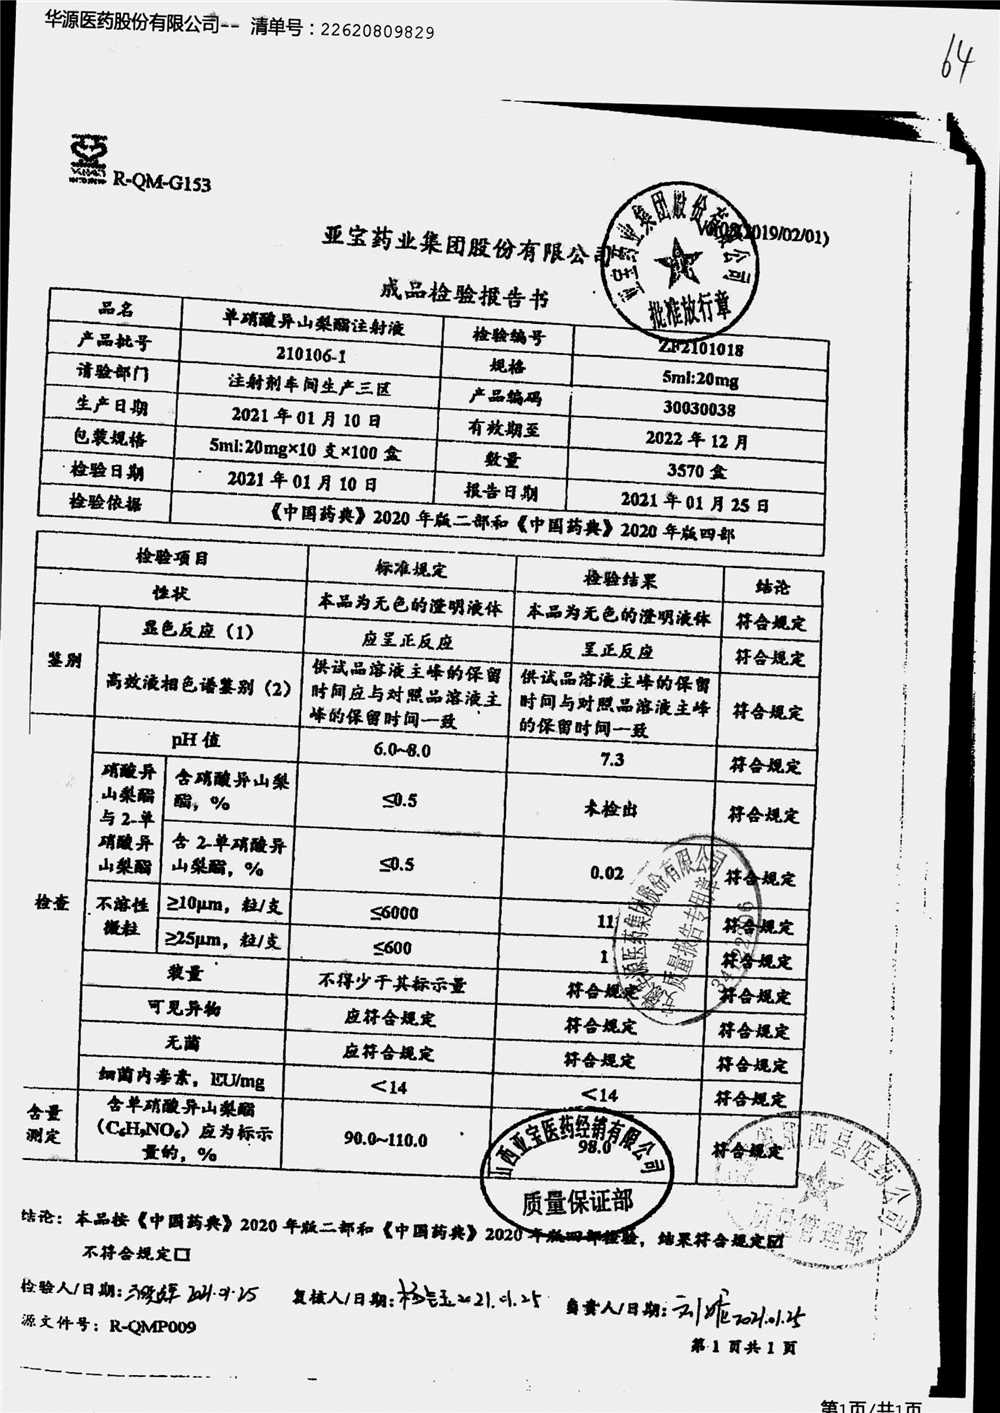 华源医药股份有限公司-- 清单号：22620809829
64
R-QM-G153
(2019/02/01)
亚宝药业集团股份有限公司
成品检验报告书
亚宝药业集团股份有限公司
批准放行章
品名 单硝酸异山梨酯注射液 检验编号 ZF2101018
产品批号 210106-1 规格 5ml:20mg
请验部门 注射剂车间生产三区 产品编码 30030038
生产日期 2021 年 01 月 10 日 有效期至 2022 年 12 月
包装规格 5ml:20mg×10 支×100 盒 数量 3570 盒
检验日期 2021 年 01 月 10 日 报告日期 2021 年 01 月 25 日
检验依据 《中国药典》2020 年版二部和《中国药典》2020 年版四部
检验项目 标准规定 检验结果 结论
性状 本品为无色的澄明液体 本品为无色的澄明液体 符合规定
鉴别 显色反应（1） 应呈正反应 呈正反应 符合规定
高效液相色谱鉴别（2） 供试品溶液主峰的保留 供试品溶液主峰的保留 符合规定
时间应与对照品溶液主 时间与对照品溶液主峰
峰的保留时间一致 的保留时间一致
检查 pH 值 6.0~8.0 7.3 符合规定
硝酸异 含硝酸异山梨 ≤0.5 未检出 符合规定
山梨酯 酯，%
与 2-单
硝酸异 含 2-单硝酸异 ≤0.5 0.02 符合规定
山梨酯 山梨酯，%
不溶性 ≥10μm，粒/支 ≤6000 11 符合规定
微粒 ≥25μm，粒/支 ≤600 1 符合规定
装量 不得少于其标示量 符合规定 符合规定
可见异物 应符合规定 符合规定 符合规定
无菌 应符合规定 符合规定 符合规定
细菌内毒素，EU/mg ＜14 ＜14 符合规定
含量 含单硝酸异山梨酯 90.0~110.0 98.0 符合规定
测定 （C₆H₉NO₆）应为标示
量的，%
源医药集团股份有限公司
质量报告专用章
山西亚宝医药经销有限公司
质量保证部
县医药公司
质量管理部
结论：本品按《中国药典》2020 年版二部和《中国药典》2020 年版四部检验，结果符合规定☑
不符合规定□
检验人/日期： 2021.01.25 复核人/日期： 2021.01.25 负责人/日期： 2021.01.25
源文件号：R-QMP009
第 1 页共 1 页
第1页/共1页